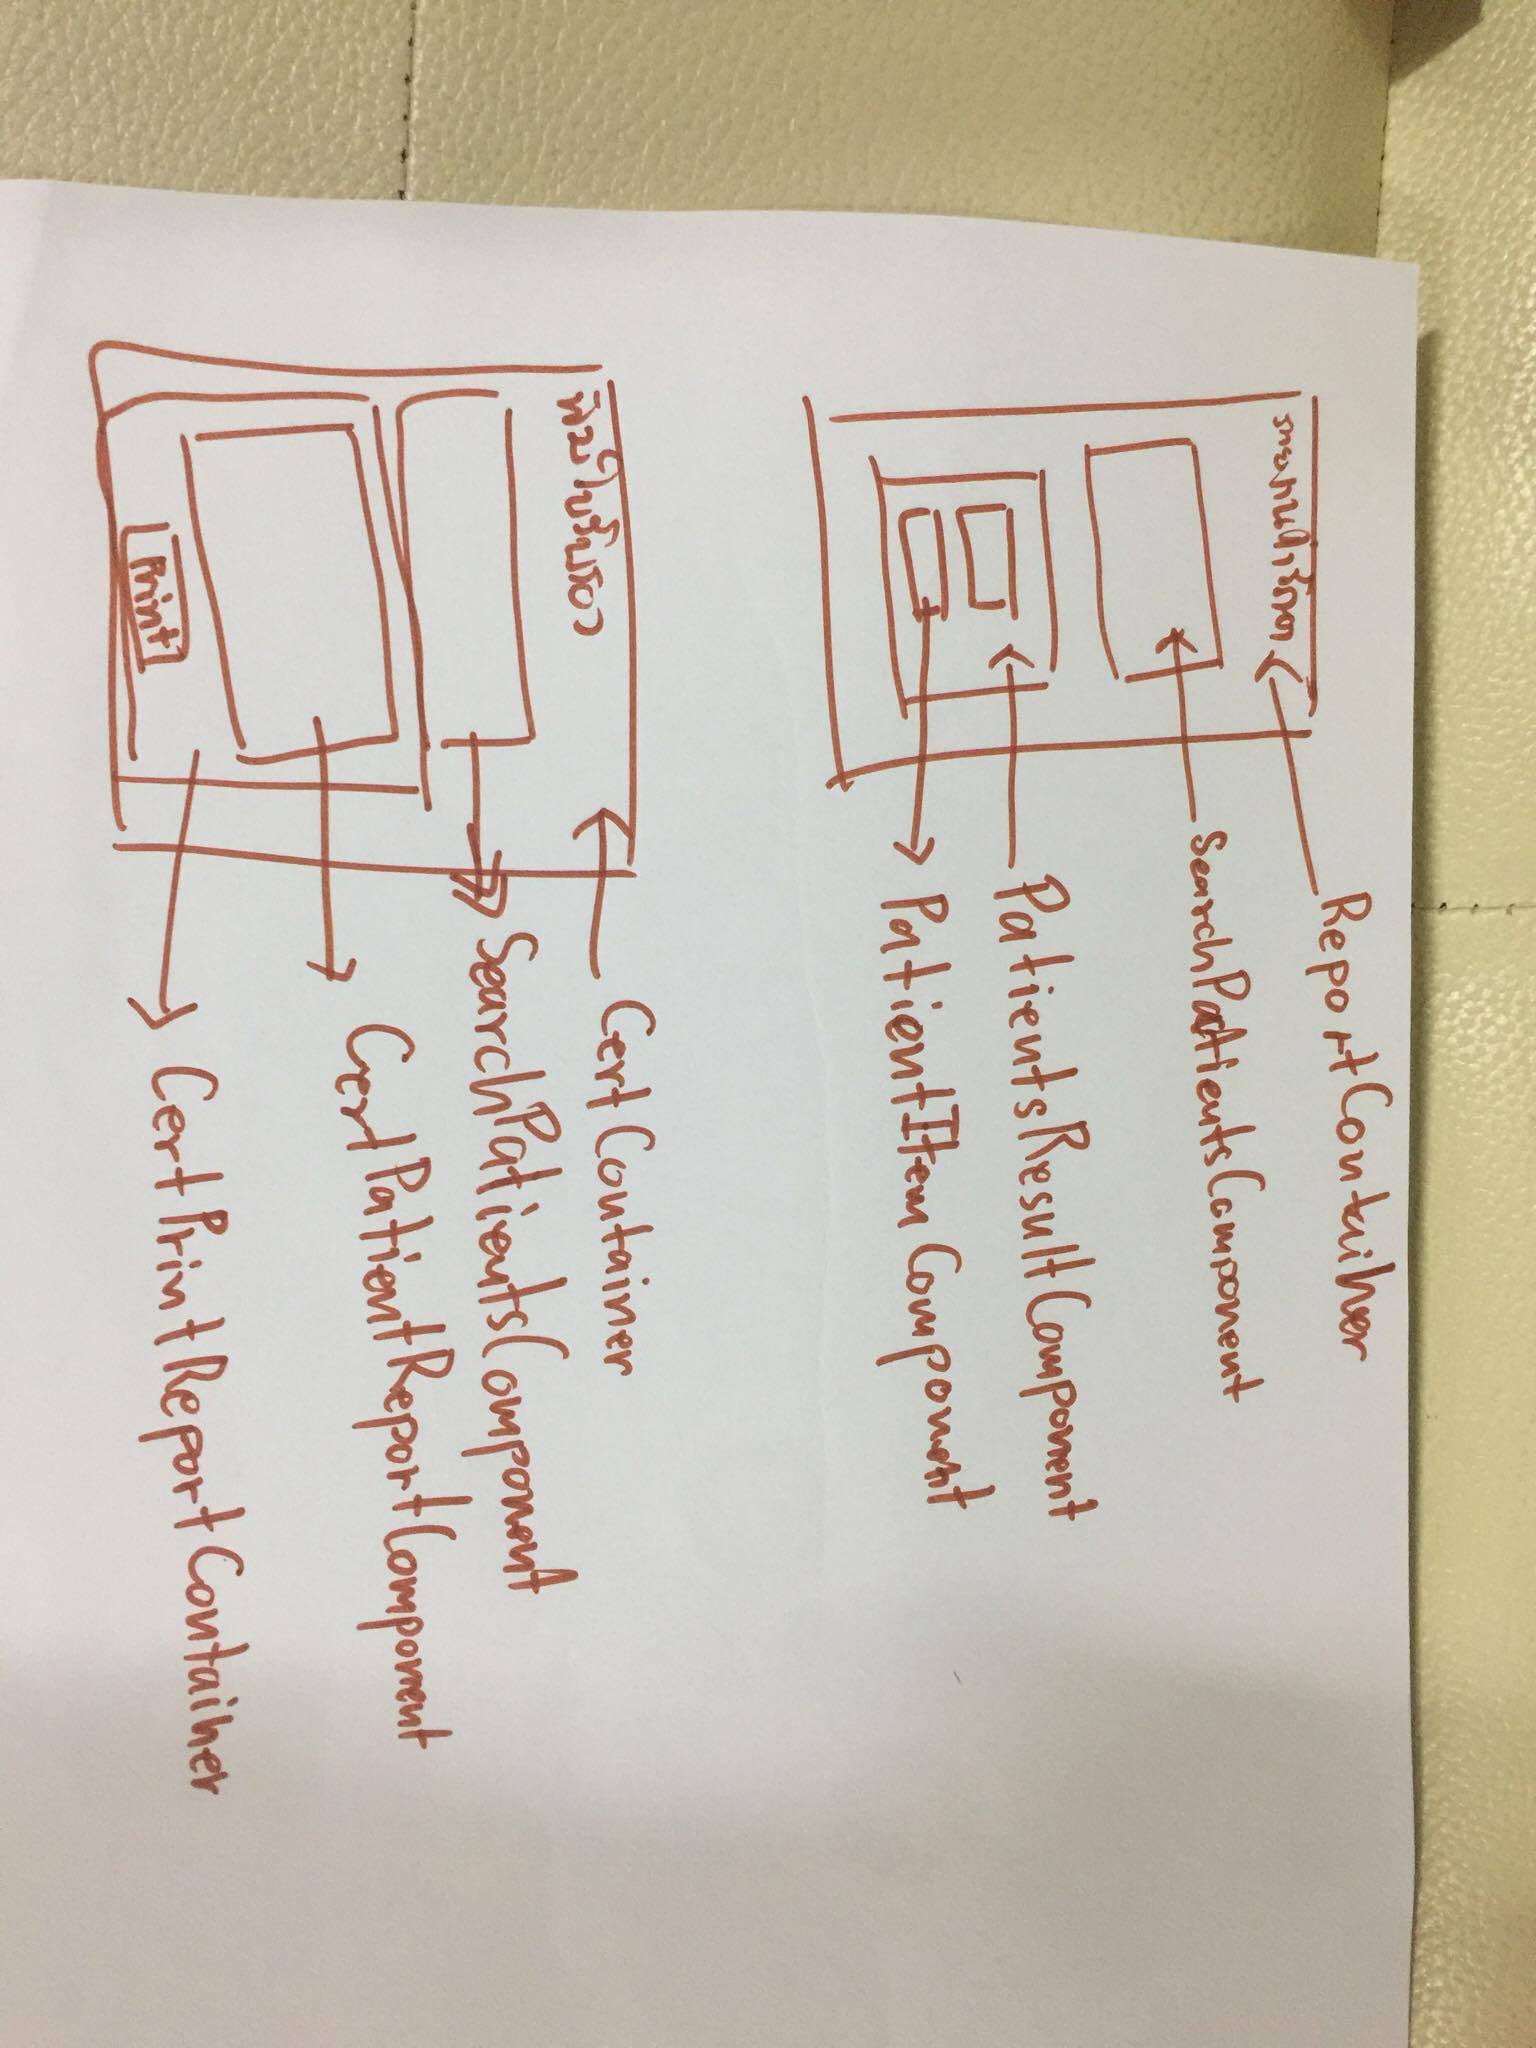 ReportContainer
SearchPatientsComponent
PatientsResultComponent
PatientItemComponent
พิมพ์ใบรับรอง
CertContainer
SearchPatientsComponent
CertPatientReportComponent
Print
CertPrintReportContainer